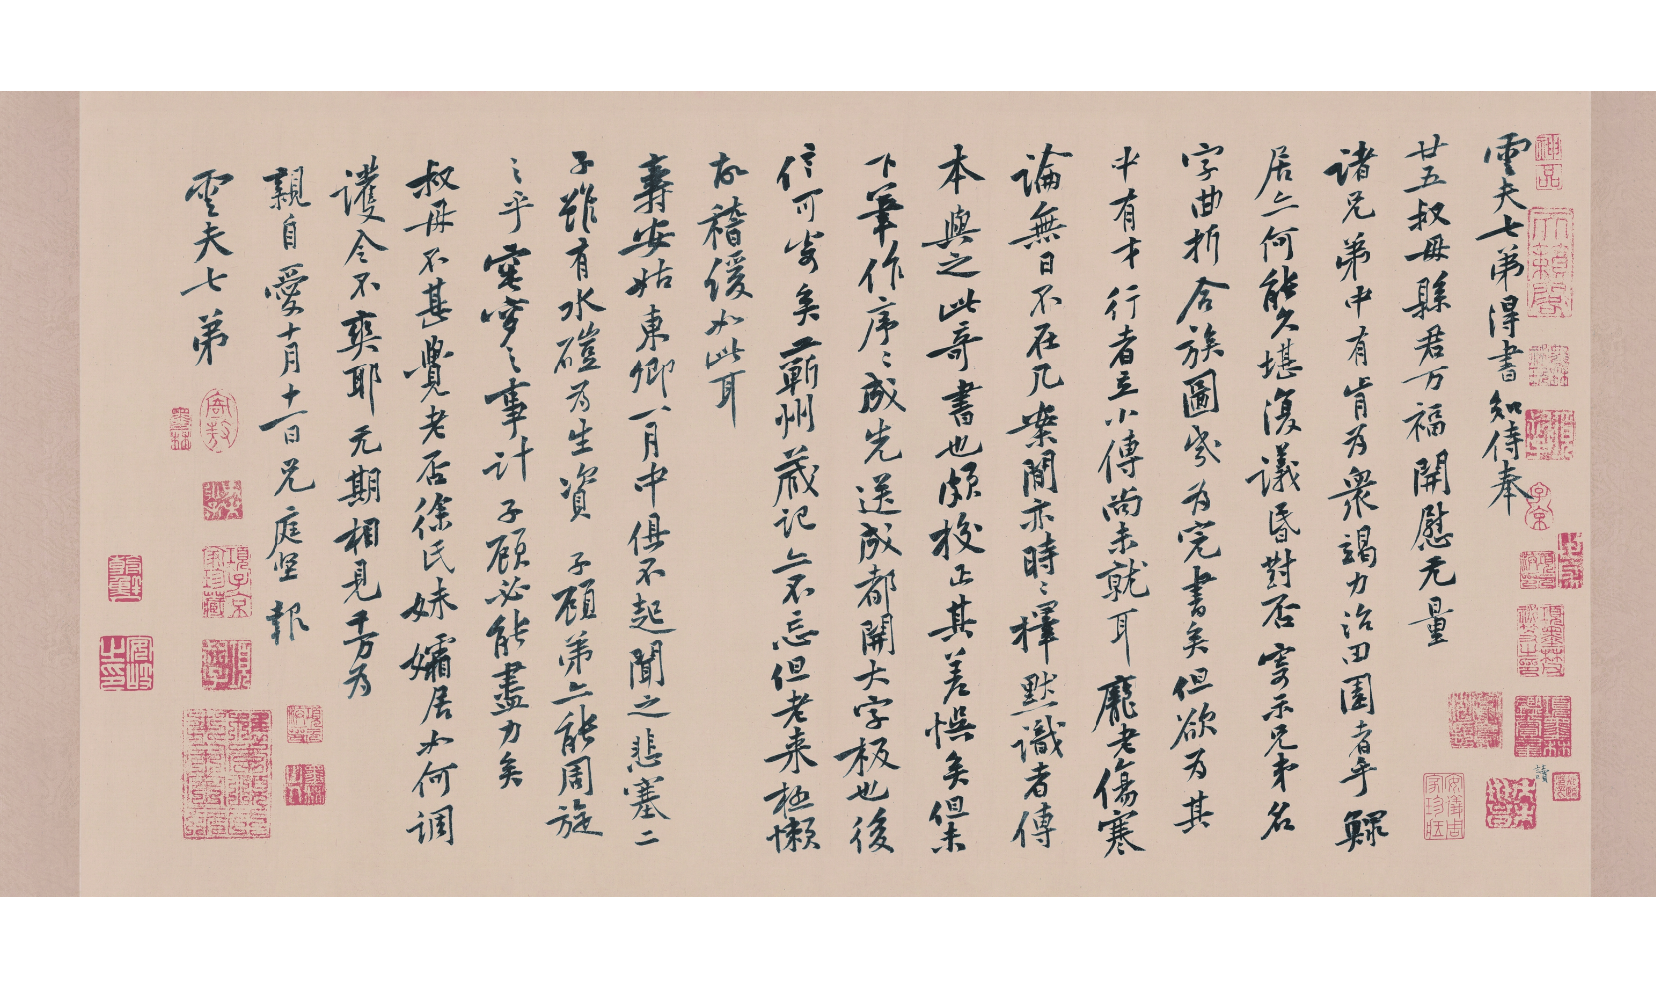 雲夫七弟得書知侍奉
廿五叔母縣君万福開慰无量
諸兄弟中有肯為衆竭力治田園者乎鰥
居亦何能久堪復議昏對否寄示兄弟名
字曲折合族圖幾為完書矣但欲為其
中有才行者立小傳尚未就耳龐老傷寒
論無日不在几案間亦時時擇默識者傳
本與之此奇書也頗校正其差悮矣但未
下筆作序序成先送成都開大字板也後
信可寄矣蘄州蕆記亦不忘但老来極懶
故稽緩如此耳
壽安姑東卿一月中俱不起聞之悲塞二
子雖有水磑為生資子顧弟亦能周旋
之乎窀穸之事計子顧必能盡力矣
叔母不甚覺老否徐氏妹孀居如何調
護令不爽耶无期相見千万為
親自愛十月十一日兄庭堅報
雲夫七弟